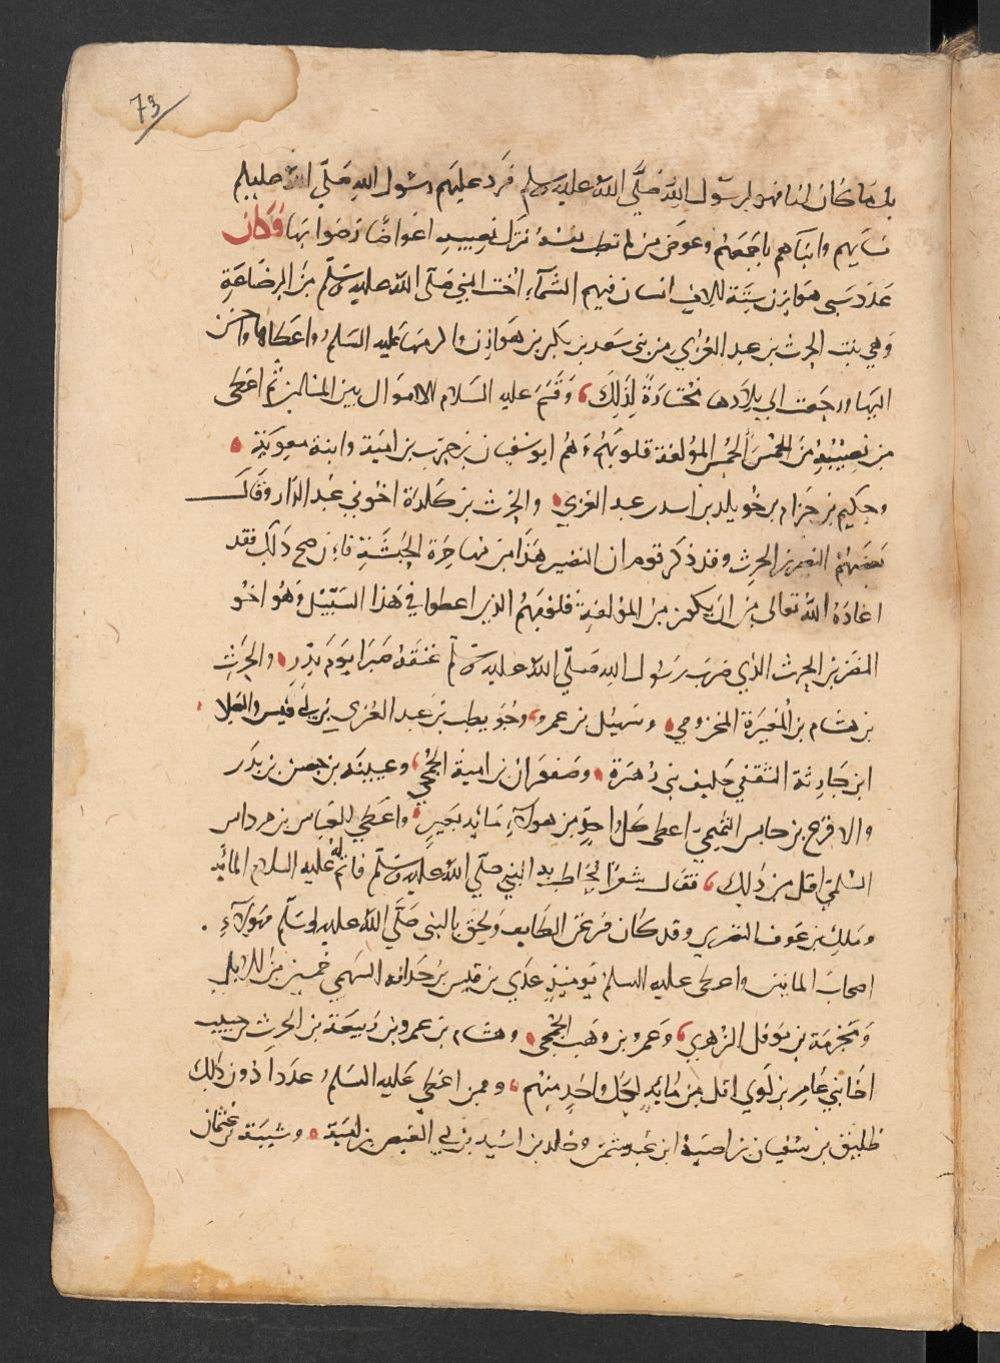 73
بل ما كان لنا فهو لرسول الله صلى الله عليه وسلم فرد عليهم رسول الله صلى الله عليه وسلم
نسايهم وابناهم باجمعهم وعوض من لم تطب نفسه بترك نصيبه اعواضا رضوا بها فكان
عدد سبي هوازن ستة الاف انسان فيهم الشمآء اخت النبي صلى الله عليه وسلم من الرضاعة
وهي بنت الحرث بن عبد العزي من بني سعد بن بكر بن هوازن واكرمها عليه السلم واعطاها واحسن
اليها ورجعت الي بلادها مختارة لذلك وقسم عليه السلام الاموال بين المسلمين ثم اعطى
من نصيبه من الخمس الخمس المولفة قلوبهم وهم ابو سفيان بن حرب بن امية وابنه معوية
وحكيم بن حزام بن خويلد بن اسد بن عبد العزي والحرث بن كلدة اخو بني عبد الدار وقال
بعضهم النضير بن الحرث وقد ذكر قوم ان النضير هذا من مهاجرة الحبشة فان صح ذلك فقد
اعاذه الله تعالى من ان يكون من المؤلفة قلوبهم الذين اعطوا في هذا السبيل وهو اخو
النضر بن الحرث الذي ضرب رسول الله صلى الله عليه وسلم عنقه صبرا يوم بدر والحرث
بن هشام بن المغيرة المخزومي وسهيل بن عمرو وحويطب بن عبد العزي بن ابي قيس والعلا
ابن جارية الثقفي حليف بني زهرة وصفوان بن امية الجمحي وعيينه بن حصن بن بدر
والاقرع بن حابس التميمي اعطى كل واحد من هولآء مائة بعير واعطي للعباس بن مرداس
السلمي اقل من ذلك فقال شعرا يخاطب به النبي صلي الله عليه وسلم فاتم له عليه السلام المائة
وملك بن عوف النصري وقد كان فر عن الطايف ولحق بالنبى صلي الله عليه وسلم فهولآء
اصحاب المائين واعطى عليه السلم يومئذ عدي بن قيس بن حذافه السهمي خمسين من الابل
ومخرمة بن نوفل الزهري وعمير بن وهب الجمحي وهشام بن عمرو بن ربيعة بن الحرث بن حبيب
اخا بني عامر بن لوي اقل من مائة لكل واحد منهم وممن اعطي عليه السلم عددا دون ذلك
طليق بن سفيان بن امية ابن عبد شمس وخلد بن اسيد بن ابي العيص بن امية وشيبة بن عثمان